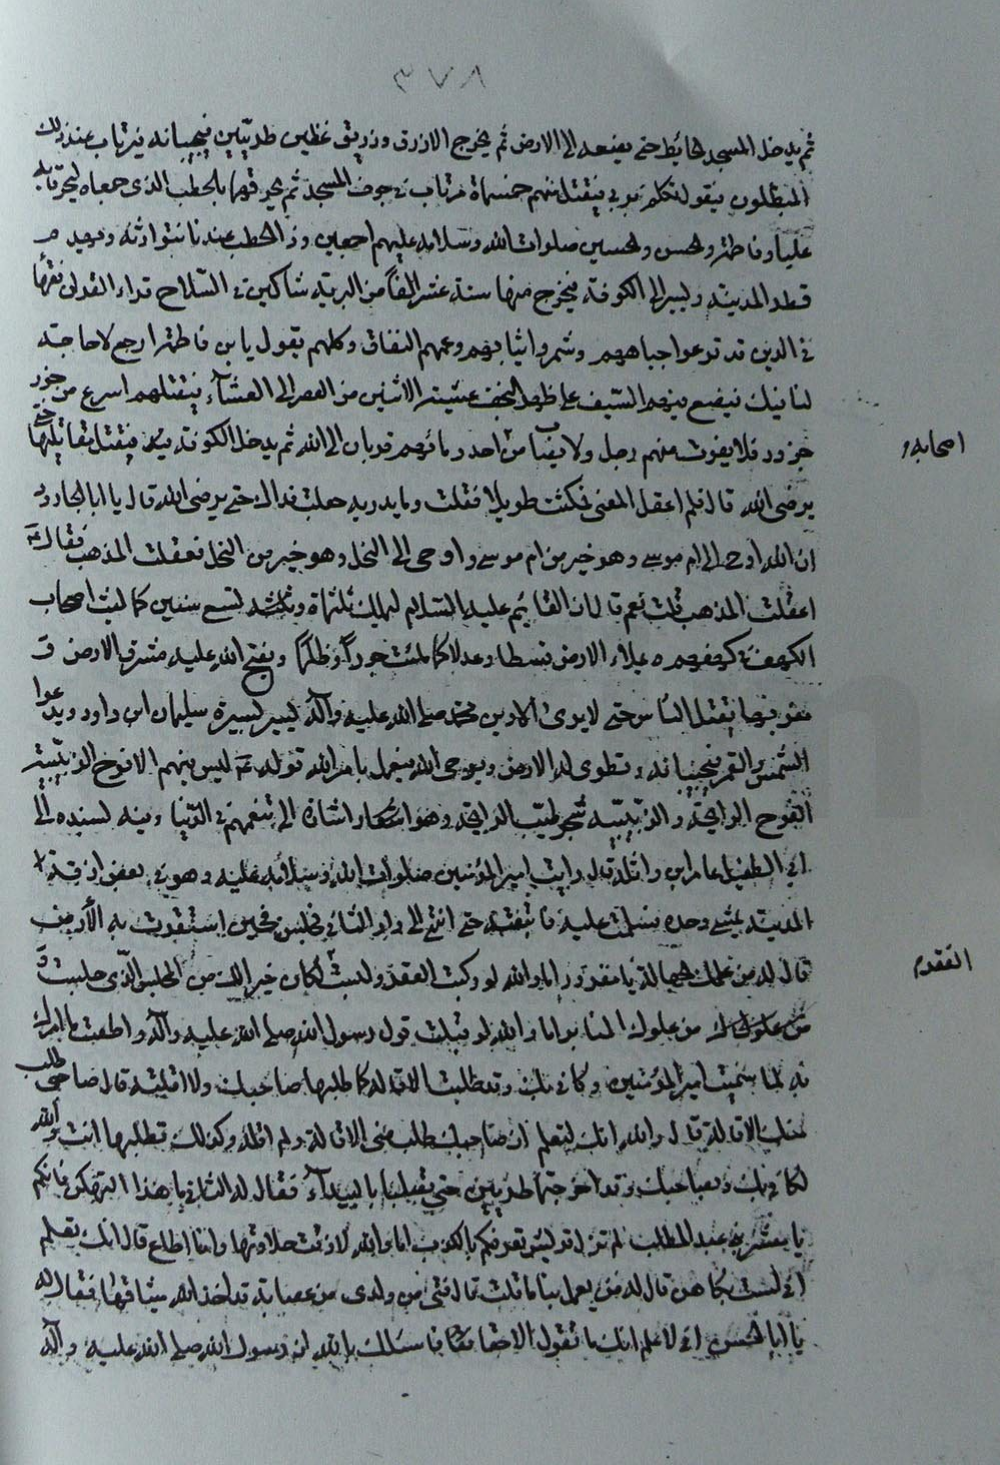 ٣٧٨
ثم يدخل المسجد الحائط حتى يضعه الى الارض ثم يخرج الازرق وزريق غظين طريين فيجيبانه فيرتاب عند ذلك
المبطلون فيقول تكلم موتى فيقتل منهم خمسمائة مرتاب في جوف المسجد ثم يحرقهما بالحطب الذي جمعاه ليحرقا به
عليا وفاطمة والحسن والحسين صلوات الله وسلامه عليهم اجمعين وذ الحطب عندنا نتوارثه ويهدم
قصر المدينة ويسير الى الكوفة فيخرج منها ستة عشر الفا من البترية شاكين في السلاح قراء القران فقهاء
في الدين قد قرعوا جباههم وشمروا ثيابهم وعمهم النفاق وكلهم يقول يا بن فاطمة ارجع لا حاجة
لنا فيك فيضع فيهم السيف على ظهر النجف عشية الاثنين من العصر الى العشاء فيقتلهم اسرع من جزر
جزور فلا يفوت منهم رجل ولا يصاب من احد دمائهم قربان الى الله ثم يدخل الكوفة فيقتل مقاتليها حتى
اصحابه
يرضى الله قال فلم اعقل المعنى فمكثت طويلا فقلت وما يدريه جعلت فداك حتى يرضى الله قال يا ابا الجارود
ان الله اوحى الى ام موسى وهو خير من ام موسى واوحى الى النحل وهو خير من النحل فعقلت المذهب فقال
اعقلت المذهب قلت نعم قال ان القائم عليه السلام ليملك ثلثمائة وتسع سنين كما لبث اصحاب
الكهف في كهفهم يملاء الارض قسطا وعدلا كما ملئت جورا وظلما ويفتح الله عليه مشرق الارض و
مغربها يقتل الناس حتى لا يرى الا دين محمد صلى الله عليه وآله يسير بسيرة سليمان ابن داود ويدعوا
الشمس والقمر فيجيبانه وتطوى له الارض ويوحى الله فيعمل بامر الله قوله ليس فيهم الا فوج الزبيبية
الفوح الرايحة والزبيبية شجر طيب الرايحة وهو استعار اشارة الى تنعمهم في الدنيا وفيه بسنده الى
ابي الطفيل عامر ابن واثلة قال رايت امير المؤمنين صلوات الله وسلامه عليه وهو في بعض ازقة
المدينة يمشي وحده فسلمت عليه فاتبعته حتى انتهى الى دار الثاني فجلس فحين استقرت به الارض
قال له من علمك الجهالة يا مغرور اما والله لو ركبت القفر ولبست لكان خير لك من المجلس الذي جلست
القفد
من علوك المنابر اما والله لو قبلت قول رسول الله صلى الله عليه وآله واطعت ما امرك
به لما سميت امير المؤمنين وكاني بك وقد طلبت الاقالة كما طلبها صاحبك ولا اقيلة قال صاحبي طلب
منك الاقالة قال والله انك لتعلم ان صاحبك طلب مني الاقالة ولم اقله وكذلك تطلبها انت والله
لكاني بك وبصاحبك وقد اخرجتما طريين حتى تصلبا بالبيداء فقال له الثاني ما هذا التكهن فانكم
يا معشر بني عبد المطلب لم تزل قريش تعرفكم بالكذب اما والله لا ذقت حلاوتها وانا اطاع قال انك تعلم
اني لست بكاهن قال له من يعمل بنا ما قلت قال فتى من ولدي من عصابة قد اخذ الله ميثاقها فقال له
يا ابا الحسن اني لا علم انك ما تقول الا حقا فاسئلك بالله ان رسول الله صلى الله عليه وآله